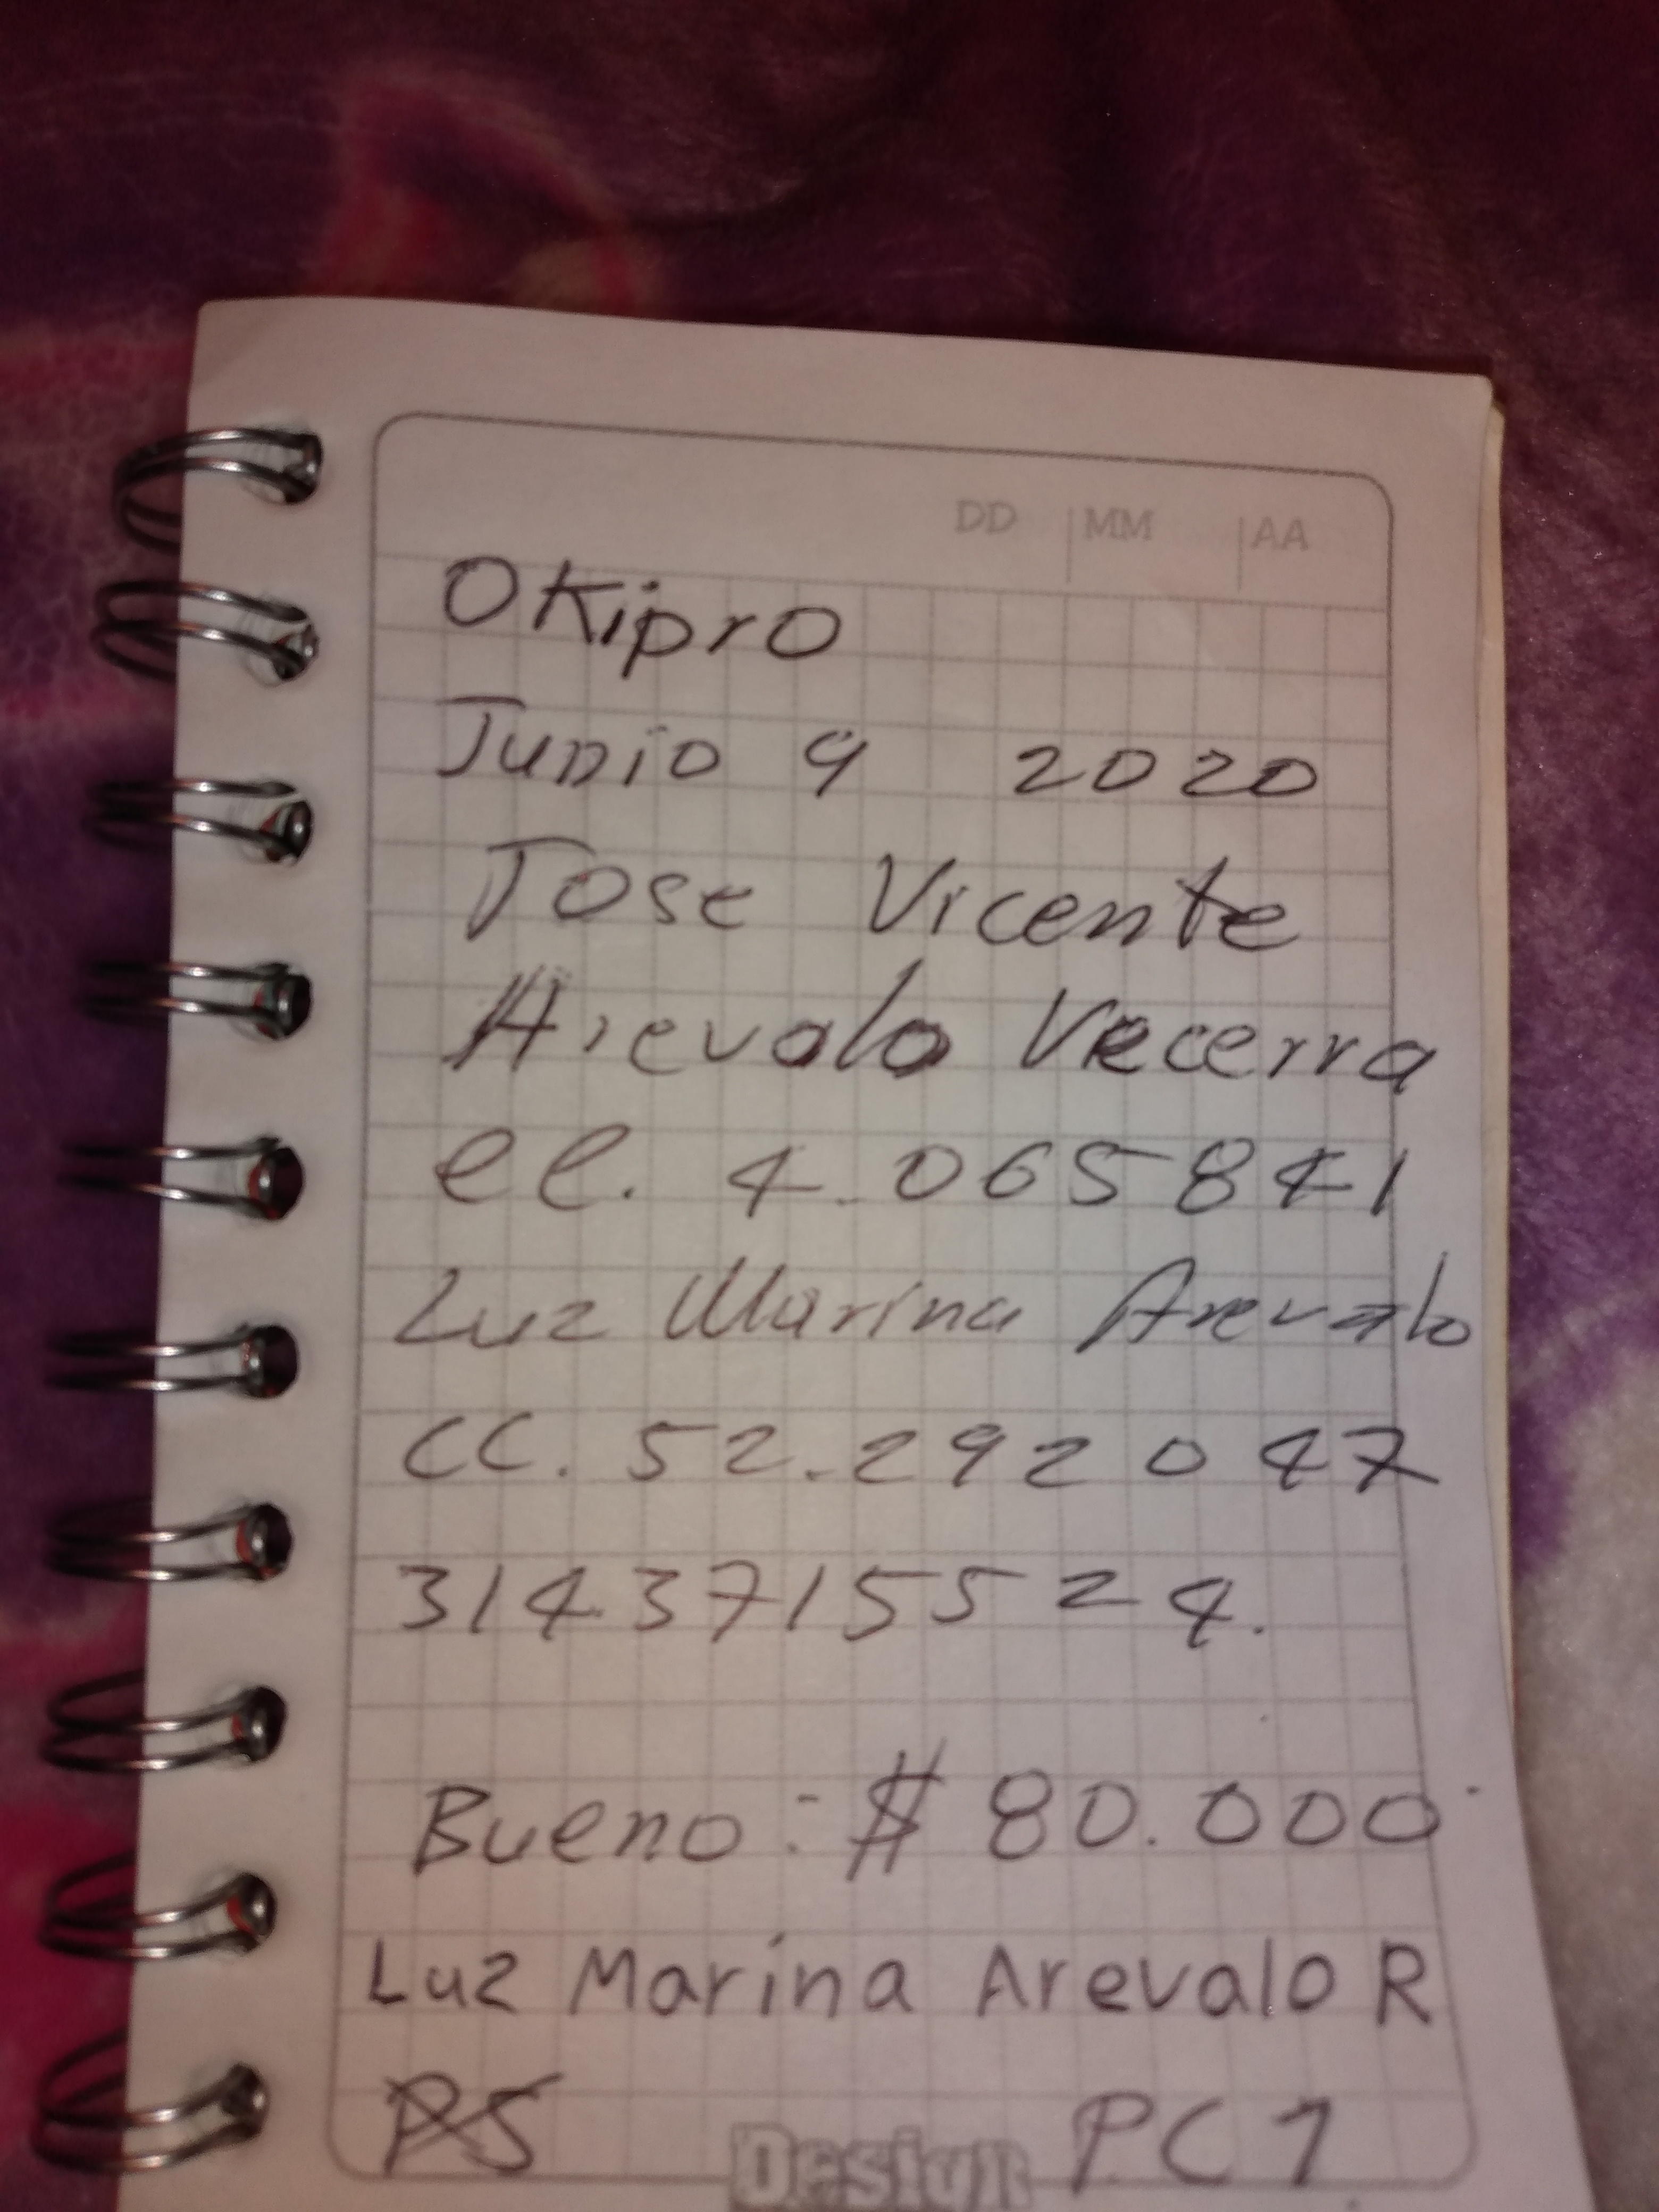 DD MM AA
OKipro
Junio 9 2020
Jose Vicente
Arevalo Vecerra
CC. 4.065841
Luz Marina Arevalo
CC. 52.292047
3143715524.
Bueno: $ 80.000
Luz Marina Arevalo R
PC1
Design